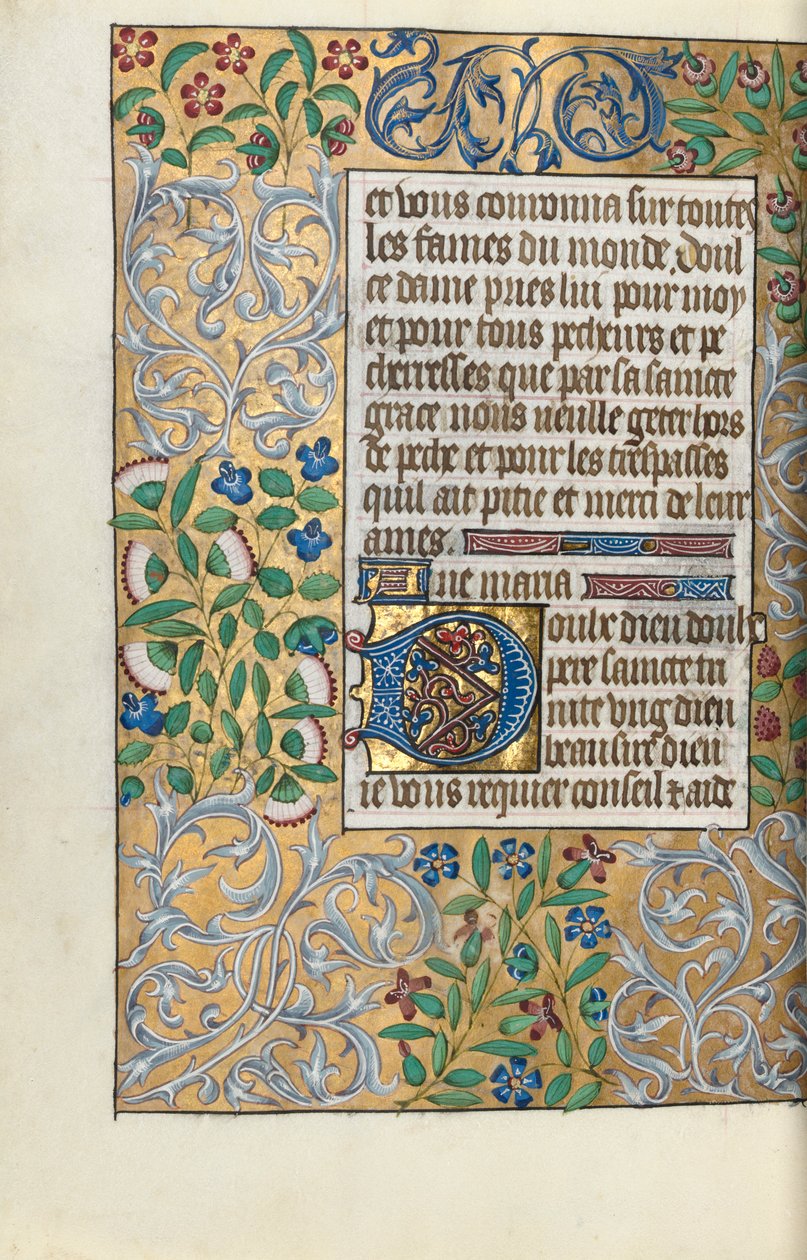 et vous couronna sur toutes
les fames du monde. doul
ce dame pries lui pour moy
et pour tous pecheurs et pe
cherresses que par sa saincte
grace nous ueulle geter hors
de peche et pour les trespasses
quil ait pitie et merci de leur
ames.
Aue maria
Doulx dieu doulx
pere saincte tri
nite vng dieu
beau sire dieu
ie vous requier conseil & aide